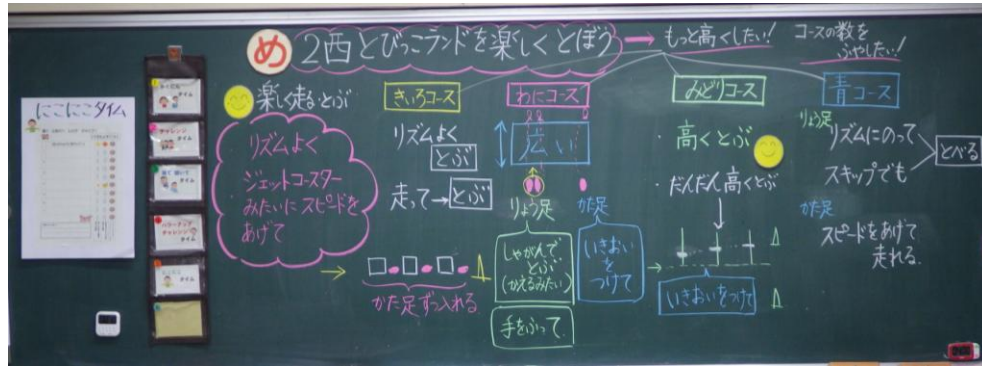 め 2西とびっこランドを楽しくとぼう → もっと高くしたい!
コースの数を
ふやしたい!
にこにこタイム
チャレンジ
タイム
パワーアップ
チャレンジ
タイム
楽しく走る・とぶ
リズムよく
ジェットコースター
みたいにスピードを
あげて
きいろコース
リズムよく
とぶ
走って→とぶ
かた足ずつ入れる
わにコース
広い
りょう足
かた足
しゃがんで
とぶ
(かえるみたい)
手をふって
いきおい
を
つけて
みどりコース
高くとぶ
・だんだん高くとぶ
いきおいをつけて
青コース
りょう足
リズムにのって
スキップでも
とべる
かた足
スピードをあげて
走れる